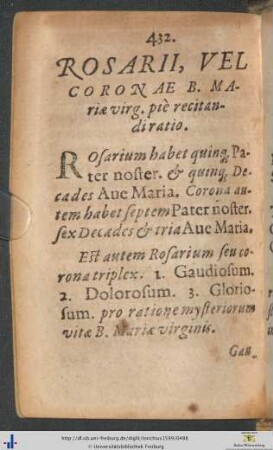 432.
ROSARII, VEL
CORONAE B. MA-
riæ virg. piè recitan-
di ratio.
ROsarium habet quinq; Pa-
ter noster. & quinq; De-
cades Aue Maria. Corona au-
tem habet septem Pater noster.
sex Decades & tria Aue Maria.
Est autem Rosarium seu co-
rona triplex. 1. Gaudiosum.
2. Dolorosum. 3. Glorio-
sum. pro ratione mysteriorum
vitæ B. Mariæ virginis.
Gau-
© Universitätsbibliothek Freiburg